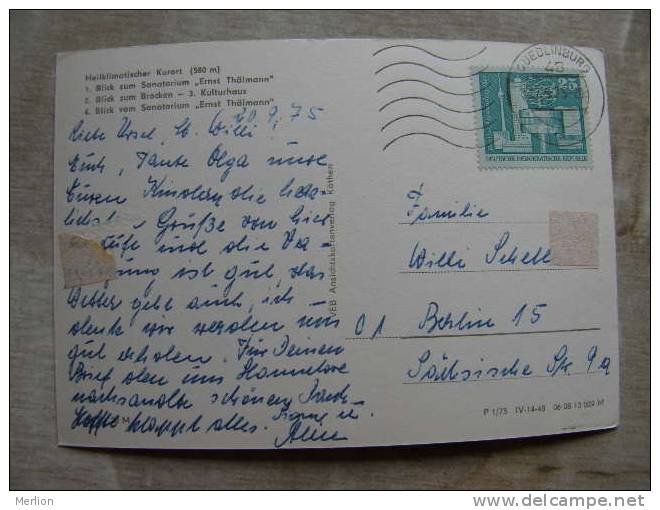 Heilklimatischer Kurort (580 m)
1. Blick zum Sanatorium „Ernst Thälmann"
2. Blick zum Brocken – 3. Kulturhaus
4. Blick vom Sanatorium „Ernst Thälmann"
20.9.75
Liebe Ursel, lb. Willi!
Euch, Tante Olga und
Euren Kindern die herz-
lichst Grüße von hier
und die Ver-
ist gut, das
Wetter geht auch, ich
denke wir werden uns
gut erholen. Für Deinen
Brief, den uns Hannelore
nachsandte schönen Dank
Hoffe klappt alles. u.
VEB Ansichtskartenverlag Köthen
QUEDLINBURG
25
DEUTSCHE DEMOKRATISCHE REPUBLIK
Familie
Willi
01 Berlin 15
Sächsische Str. 9a
P 1/75 IV-14-48 06 08 13 009 M
Merlion
www.delcampe.net